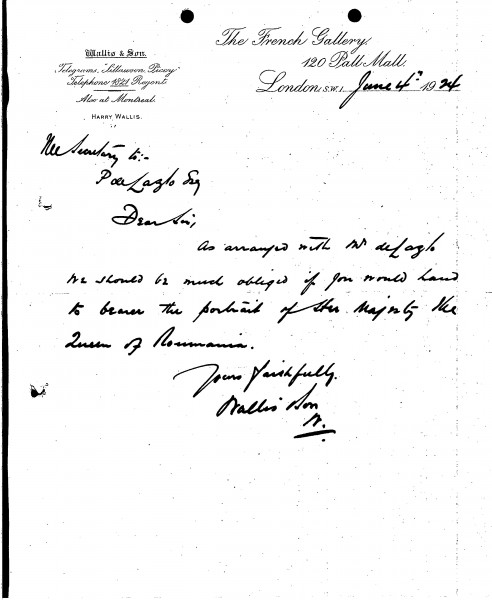 Wallis & Son.
Telegrams, "Sillawson, Piccy"
Telephone 1821 Regent
Also at Montreal.
HARRY WALLIS.
The French Gallery.
120 Pall Mall.
London, S.W.1. June 4th 1924
The Secretary to:-
P de Laszlo Esq
Dear Sir,
As arranged with Mr de Laszlo
we should be much obliged if you would hand
to bearer the portrait of Her Majesty the
Queen of Roumania.
Yours faithfully.
Wallis Son
W.